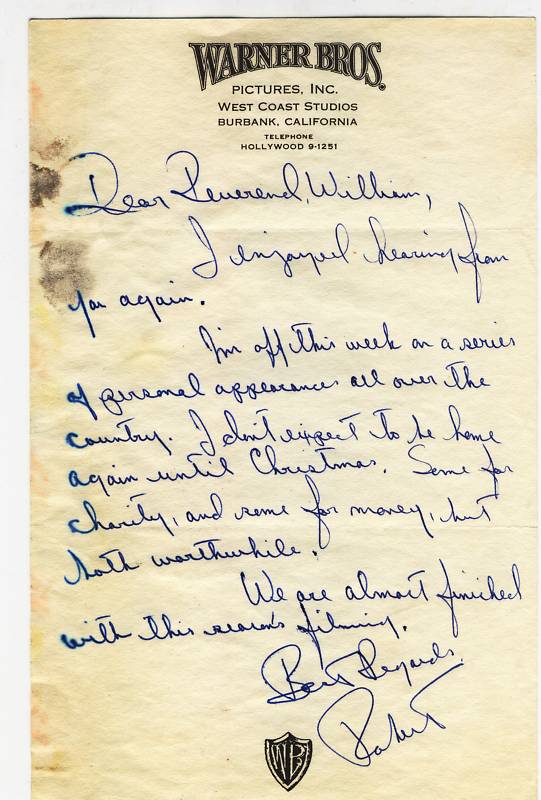 WARNER BROS.
PICTURES, INC.
WEST COAST STUDIOS
BURBANK, CALIFORNIA
TELEPHONE
HOLLYWOOD 9-1251
Dear Reverend William,
I enjoyed hearing from
you again.
I'm off this week on a series
of personal appearances all over the
country. I don't expect to be home
again until Christmas. Some for
charity, and some for money, but
both worthwhile.
We are almost finished
with this season's filming.
Best Regards.
Robert
WB